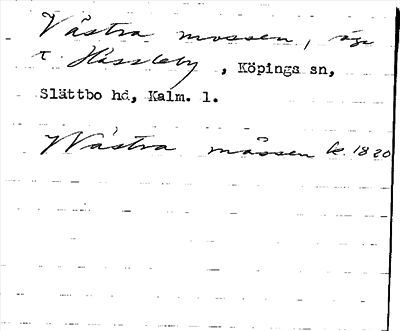 Västra mossen, äga
t. Hässleby, Köpings sn,
Slättbo hd, Kalm. l.
Wästra måssen lk. 1820